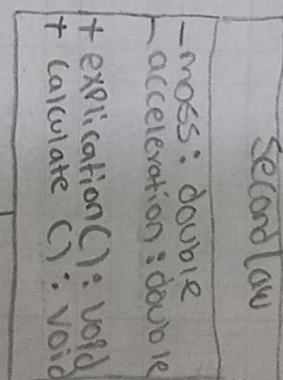 Second law
- mass: double
- acceleration: double
+ explication(): void
+ calculate (): void